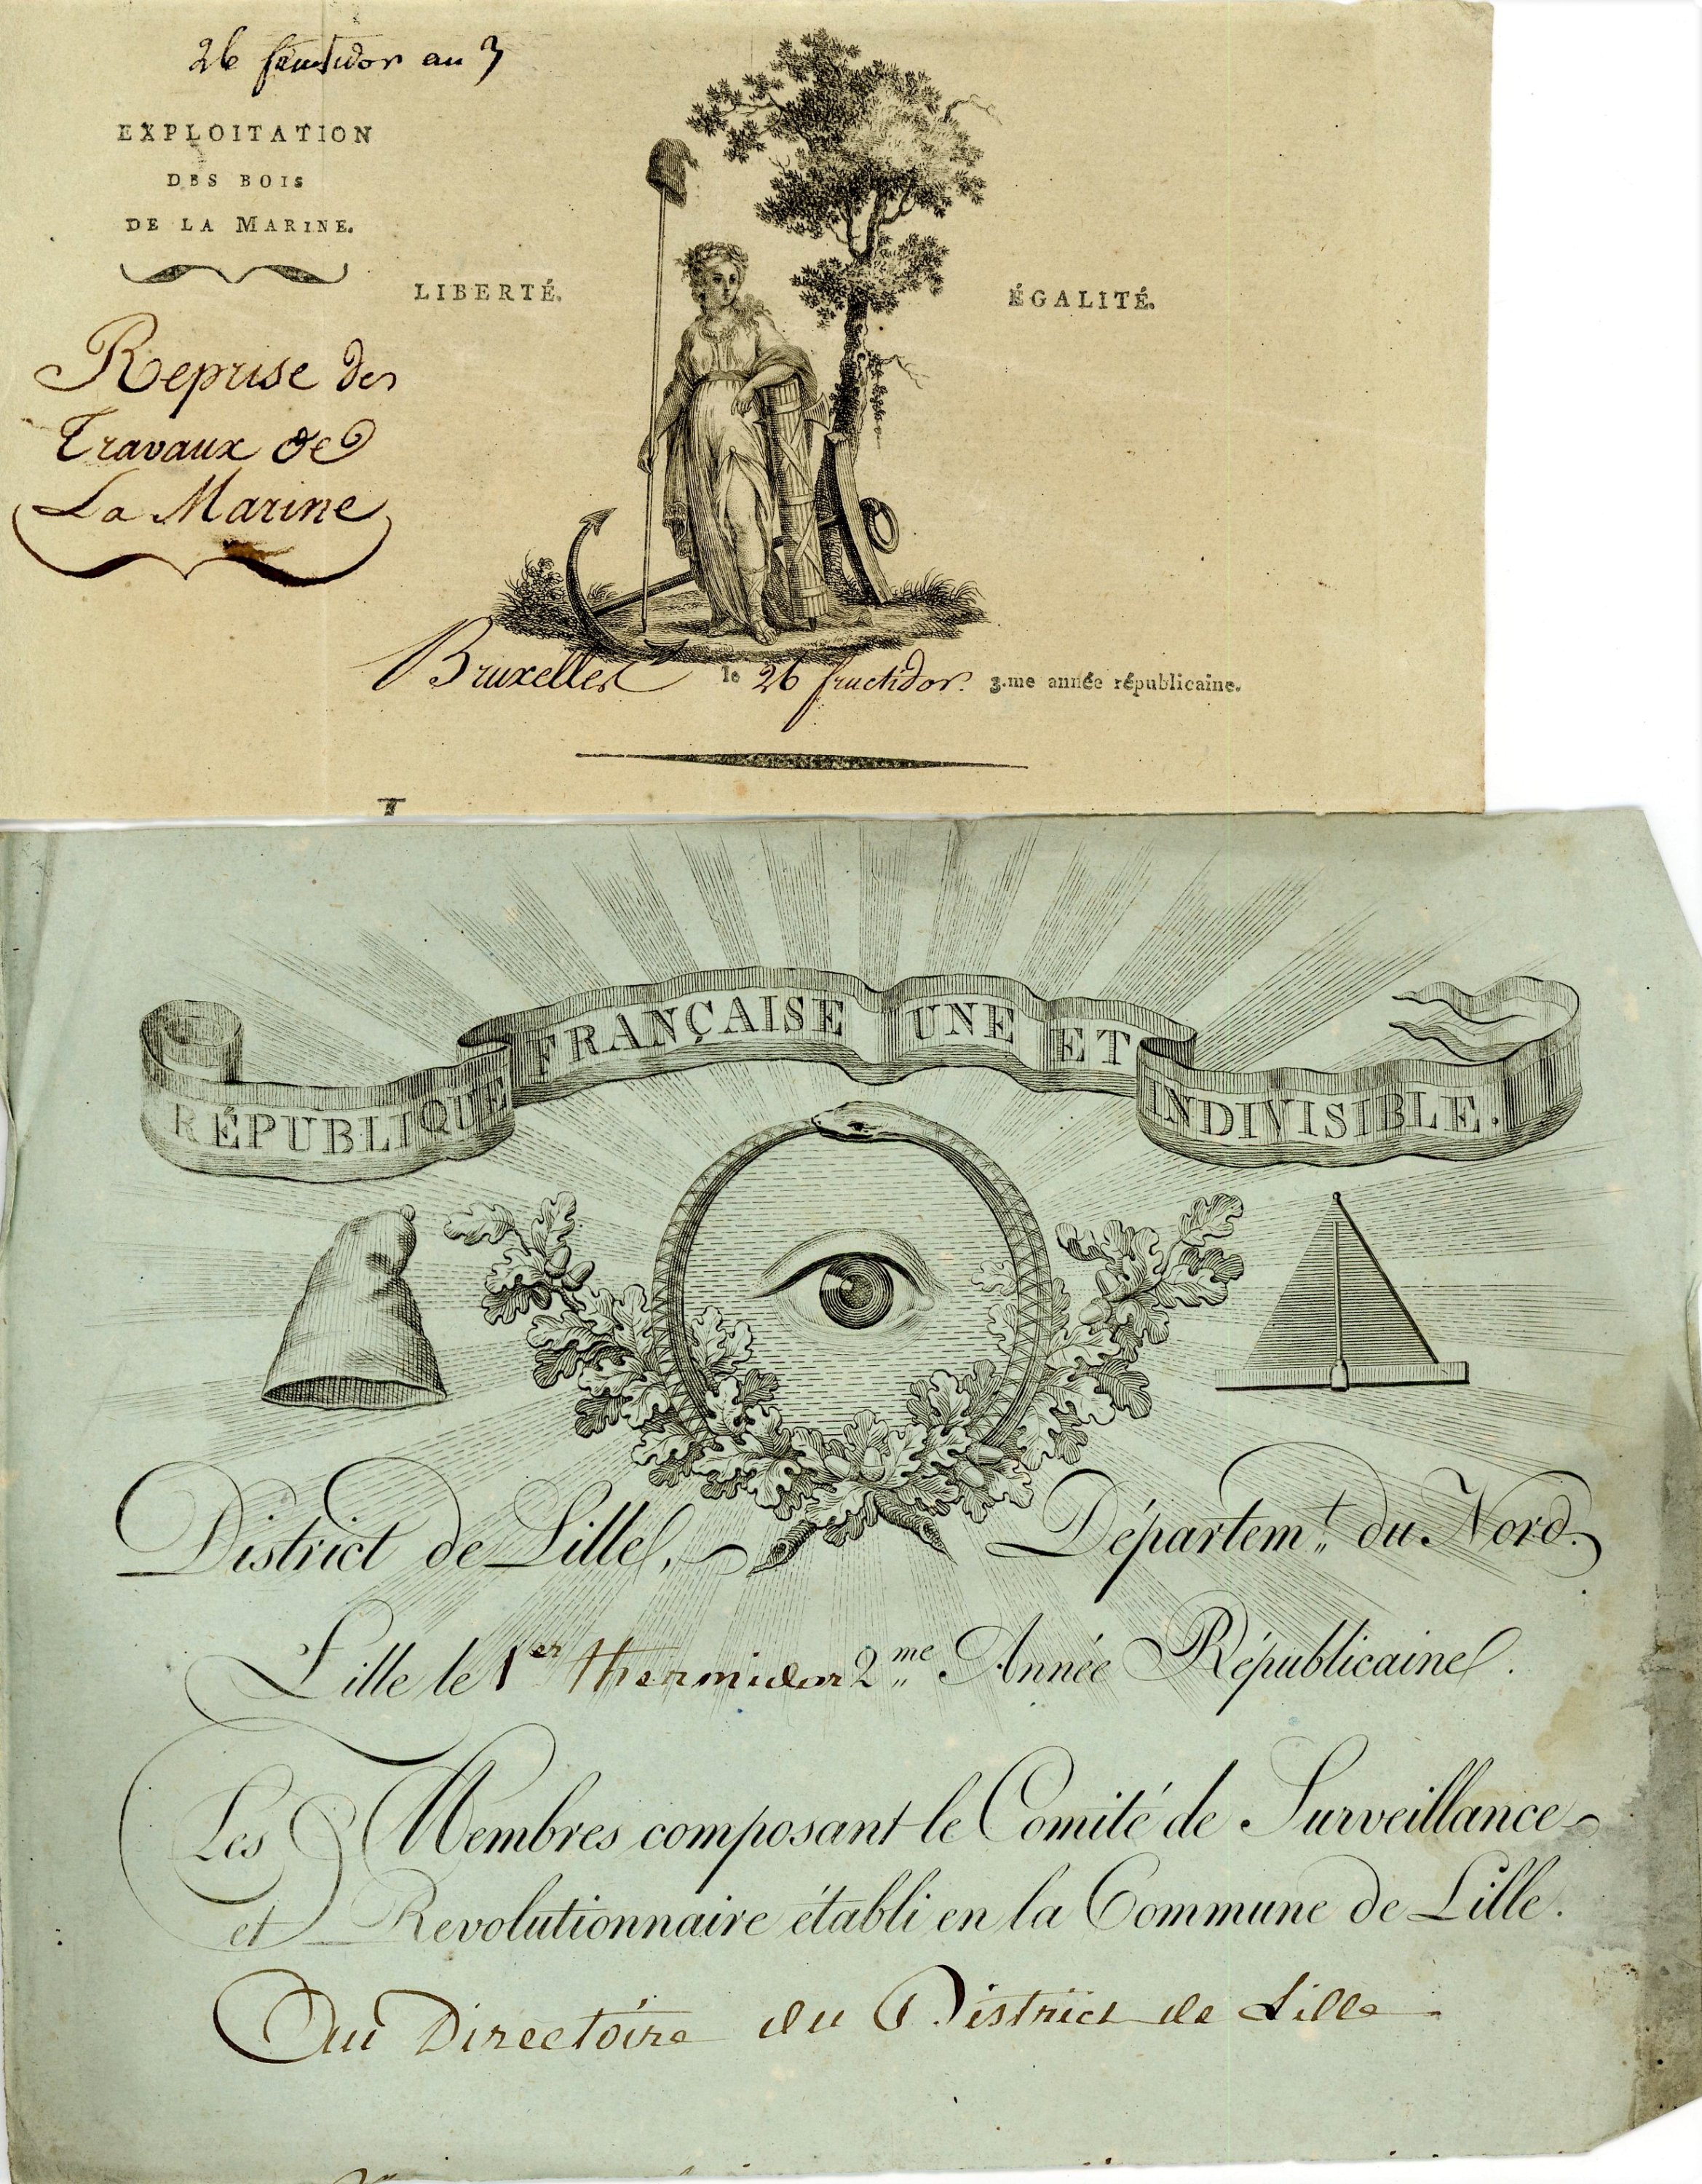 26 fructidor an 3
EXPLOITATION
DES BOIS
DE LA MARINE.
LIBERTÉ.
ÉGALITÉ.
Reprise des
Travaux de
La Marine
Bruxelles le 26 fructidor. 3.me année républicaine.
RÉPUBLIQUE FRANÇAISE UNE ET INDIVISIBLE.
District de Lille, Départem.t du Nord.
Lille le 1er thermidor 2.me Année Républicaine.
Les Membres composant le Comité de Surveillance
et Revolutionnaire établi en la Commune de Lille.
Au Directoire du District de Lille